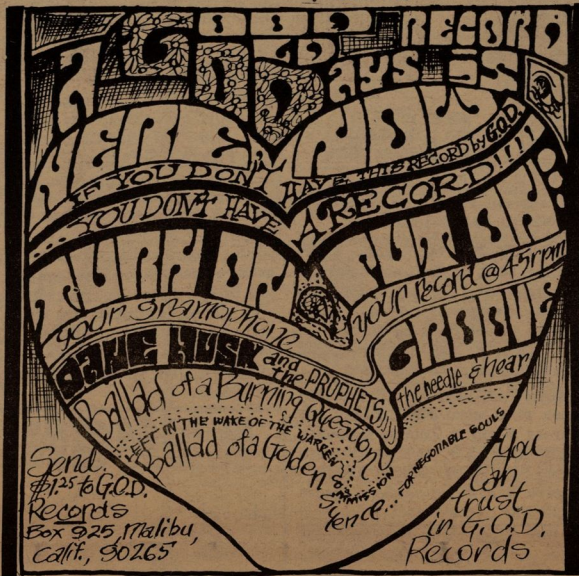 A GOOD RECORD
OLD DAYS is
HERE NOW
IF YOU DON'T HAVE THIS RECORD by G.O.D.
...YOU DON'T HAVE A RECORD!!!!
TURN ON PUT ON
your gramophone your record @ 45rpm
GROOVE
DANE MUSK and the PROPHETS)))) the needle & hear
Ballad of a Burning Question
LEFT IN THE WAKE OF THE WARREN COMMISSION
Ballad of a Golden Silence... FOR NEGOTIABLE SOULS
Send
$1.25 to G.O.D.
Records
Box 925, Malibu,
Calif., 90265
You
Can
trust
in G.O.D.
Records